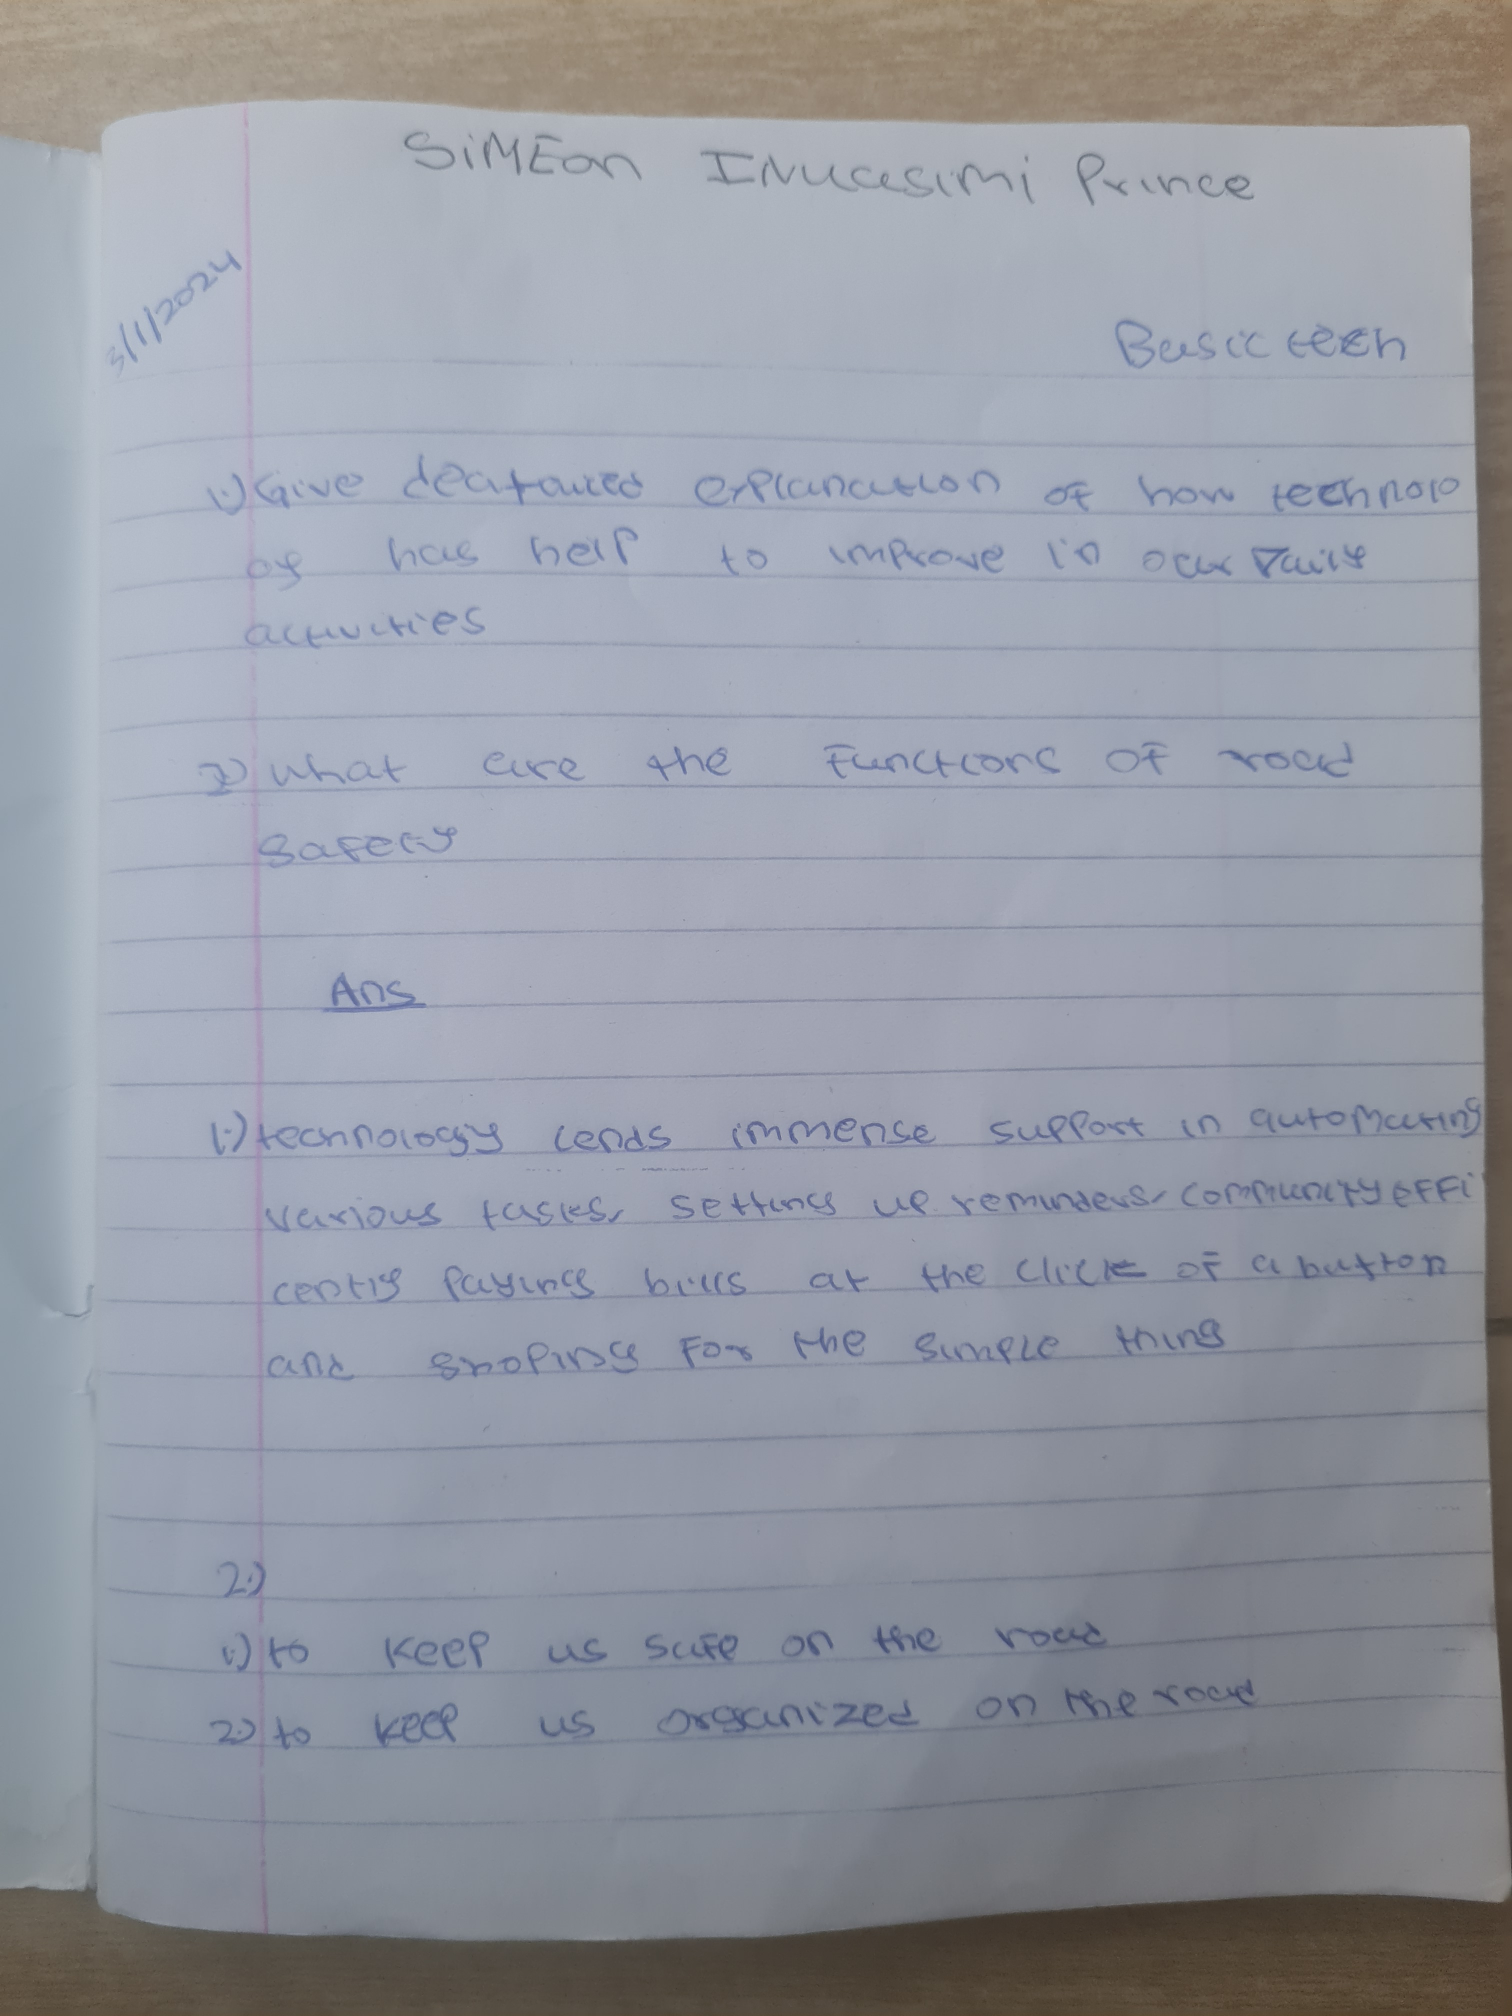 SiMEon INucasimi Prince
3/1/2024
Basic tech
1.) Give deatailed explanation of how technolo
gy has help to improve in our Daily
activities
2) What are the Functions OF road
Safety
Ans
1.) technology lends immense support in automating
various tasks, setting up reminders, community effi
cently paying bills at the click of a button
and shoping For the simple thing
2.)
1.) to keep us safe on the road
2.) to keep us organized on the road